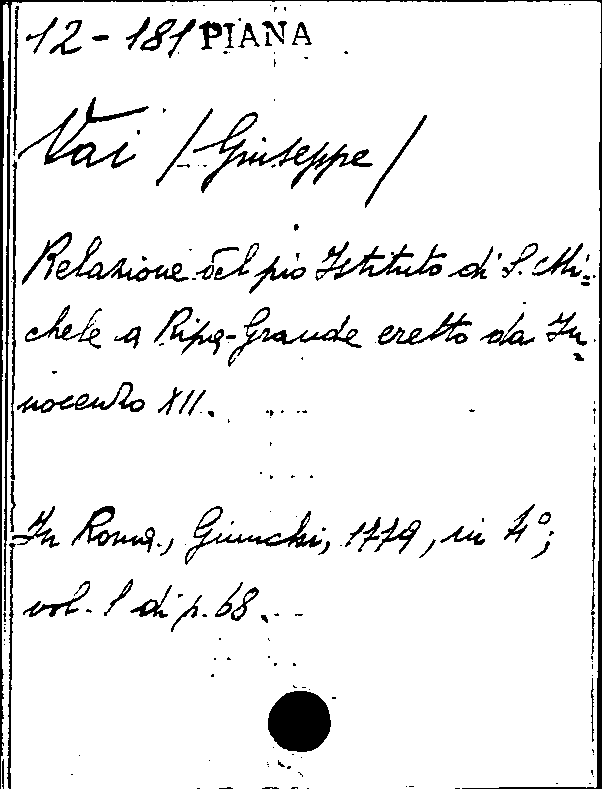 12-181 PIANA
Vai /Giuseppe/
Relazione del pio Istituto di S. Mi=
chele a Ripa-Grande eretto da In=
nocenzo XII.
In Roma., Giunchi, 1779, in 4°;
vol. 1 di p. 68.